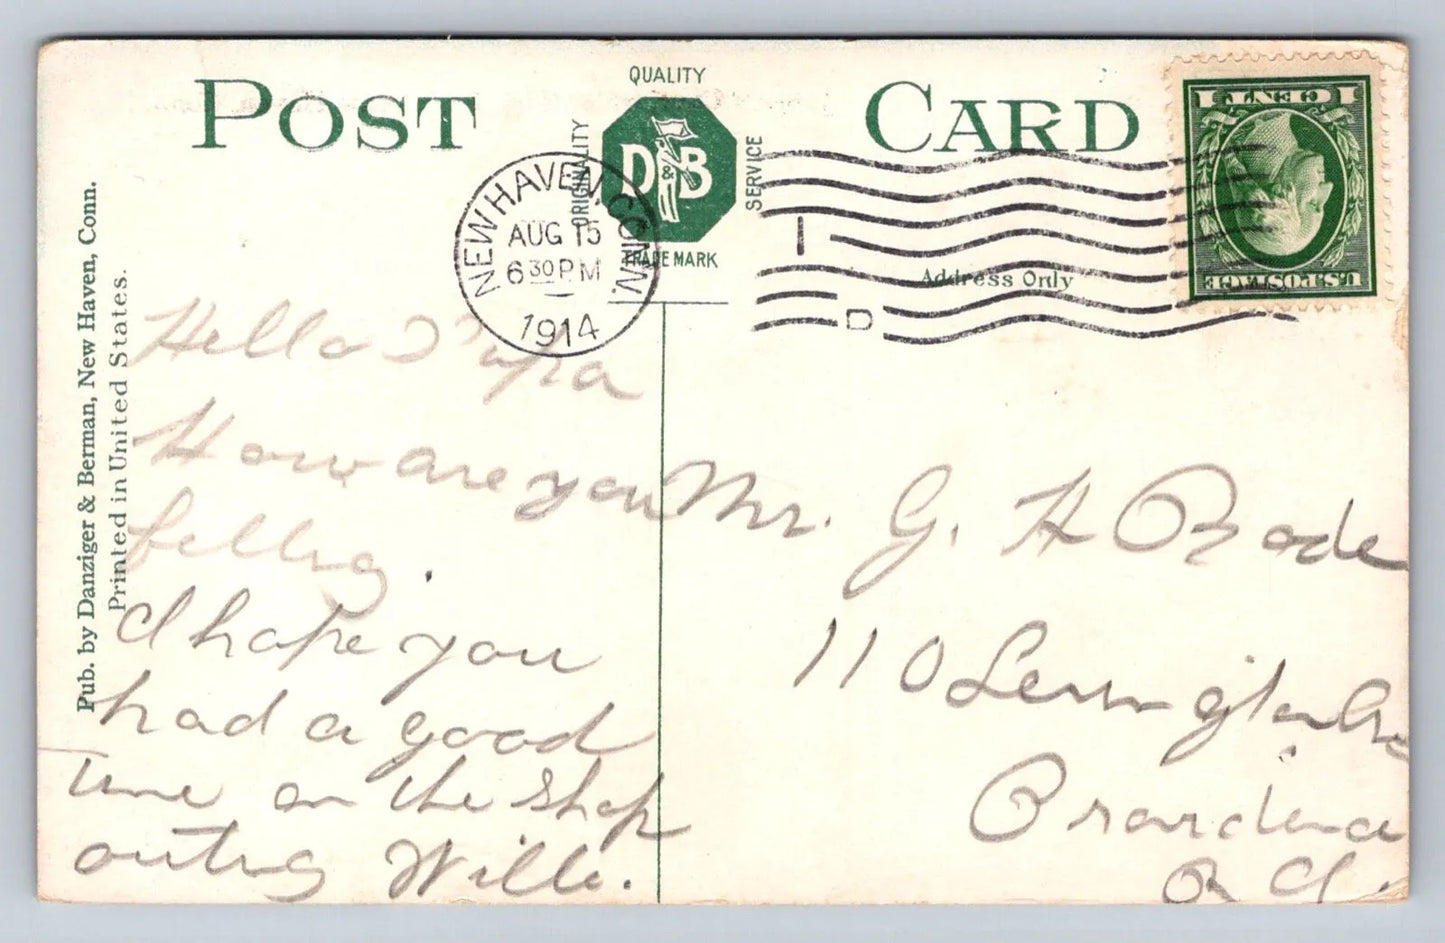 POST CARD
QUALITY
ORIGINALITY
D & B
SERVICE
TRADE MARK
NEW HAVEN, CONN.
AUG 15
6 30 PM
1914
1
D
1 CENT 1
U.S. POSTAGE
Address Only
Pub. by Danziger & Berman, New Haven, Conn.
Printed in United States.
Hello Papa
How are you
felling.
I hope you
had a good
time on the shop
outing Willie.
Mr. G. H Rode
110 Lexington Ave
Providence
R I.